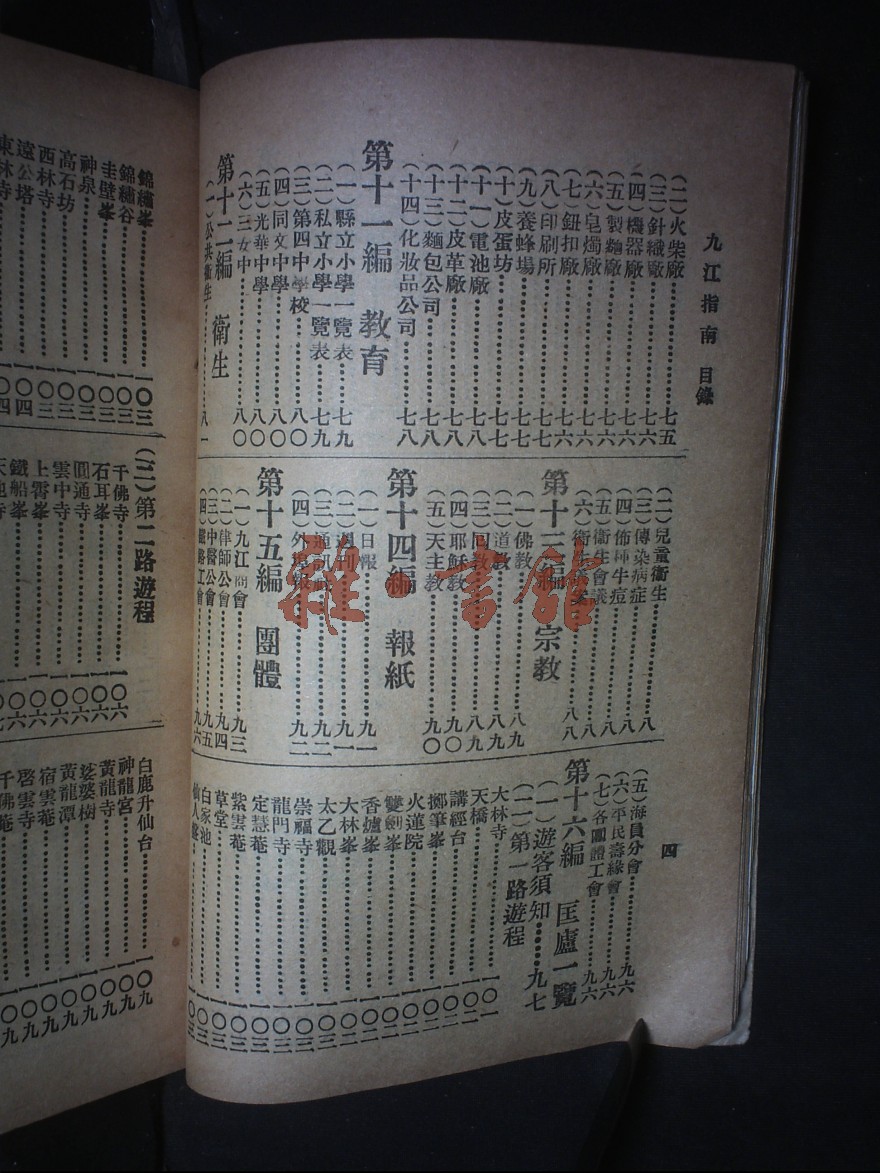 九江指南 目錄
四
(二)火柴廠……七五
(三)針織廠……七六
(四)機器廠……七六
(五)製麵廠……七六
(六)皂燭廠……七六
(七)鈕扣廠……七六
(八)印刷所……七七
(九)養蜂場……七七
(十)皮蛋坊……七七
(十一)電池廠……七七
(十二)皮革廠……七八
(十三)麵包公司……七八
(十四)化妝品公司……七八
第十一編 教育
(一)縣立小學一覽表……七九
(二)私立小學一覽表……七九
(三)第四中學校……八〇
(四)同文中學……八〇
(五)光華中學……八〇
(六)三女中……八〇
第十二編 衛生
(一)公共衛生……八一
(二)兒童衛生……八
(三)傳染病症……八
(四)佈種牛痘……八
(五)衛生會議……八
(六)衛生……八八
第十三編 宗教
(一)佛教……八九
(二)道教……八九
(三)回教……八九
(四)耶穌教……九〇
(五)天主教……九〇
第十四編 報紙
(一)日報……九一
(二)週刊……九一
(三)通訊……九二
(四)外埠報……九二
第十五編 團體
(一)九江商會……九三
(二)律師公會……九四
(三)中醫公會……九五
(四)鐵路工會……九六
(五)海員分會……九六
(六)平民壽緣會……九六
(七)各團體工會……九六
第十六編 匡廬一覽
(一)遊客須知……九七
(二)第一路遊程
大林寺……一〇一
天橋……一〇二
講經台……一〇二
擲筆峯……一〇二
火蓮院……一〇二
雙劍峯……一〇二
香爐峯……一〇二
大林峯……一〇二
太乙觀……一〇二
崇福寺……一〇二
龍門寺……一〇二
定慧菴……一〇三
紫雲菴……一〇三
草堂……一〇三
白家池……一〇三
錦繡峯……一〇三
錦繡谷……一〇三
圭壁峯……一〇三
神泉……一〇三
高石坊……一〇三
西林寺……一〇三
遠公塔……一〇四
東林寺……〇四
(三)第二路遊程
千佛寺……一〇六
石耳峯……一〇六
圓通寺……一〇六
雲中寺……一〇六
上霄峯……一〇六
鐵船峯……一〇六
天池寺
白鹿升仙台……一〇九
神龍宮……一〇九
黃龍寺……一〇九
娑婆樹……一〇九
黃龍潭……一〇九
宿雲菴……一〇九
啓雲寺……一〇九
千佛菴……〇九
雜·書館